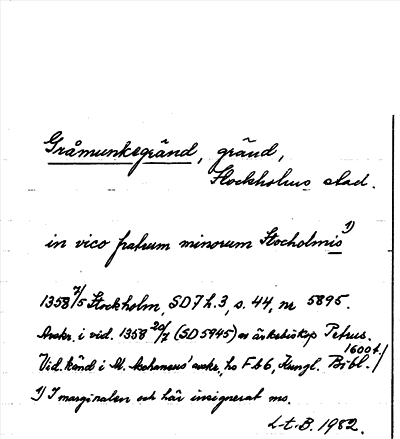 Gråmunkegränd, gränd,
Stockholms stad.
in vico fratrum minorum Stocholmis 1)
1358 7/5 Stockholm, SD 7 h. 3, s. 44, nr 5895.
Avskr. i vid. 1358 20/7 (SD 5945) av ärkebiskop Petrus.
Vid. känd i avskr., hs F b 6, Kungl. Bibl. 1600 t./
1) I marginalen och här insignerat ms.
L-t. B. 1982.